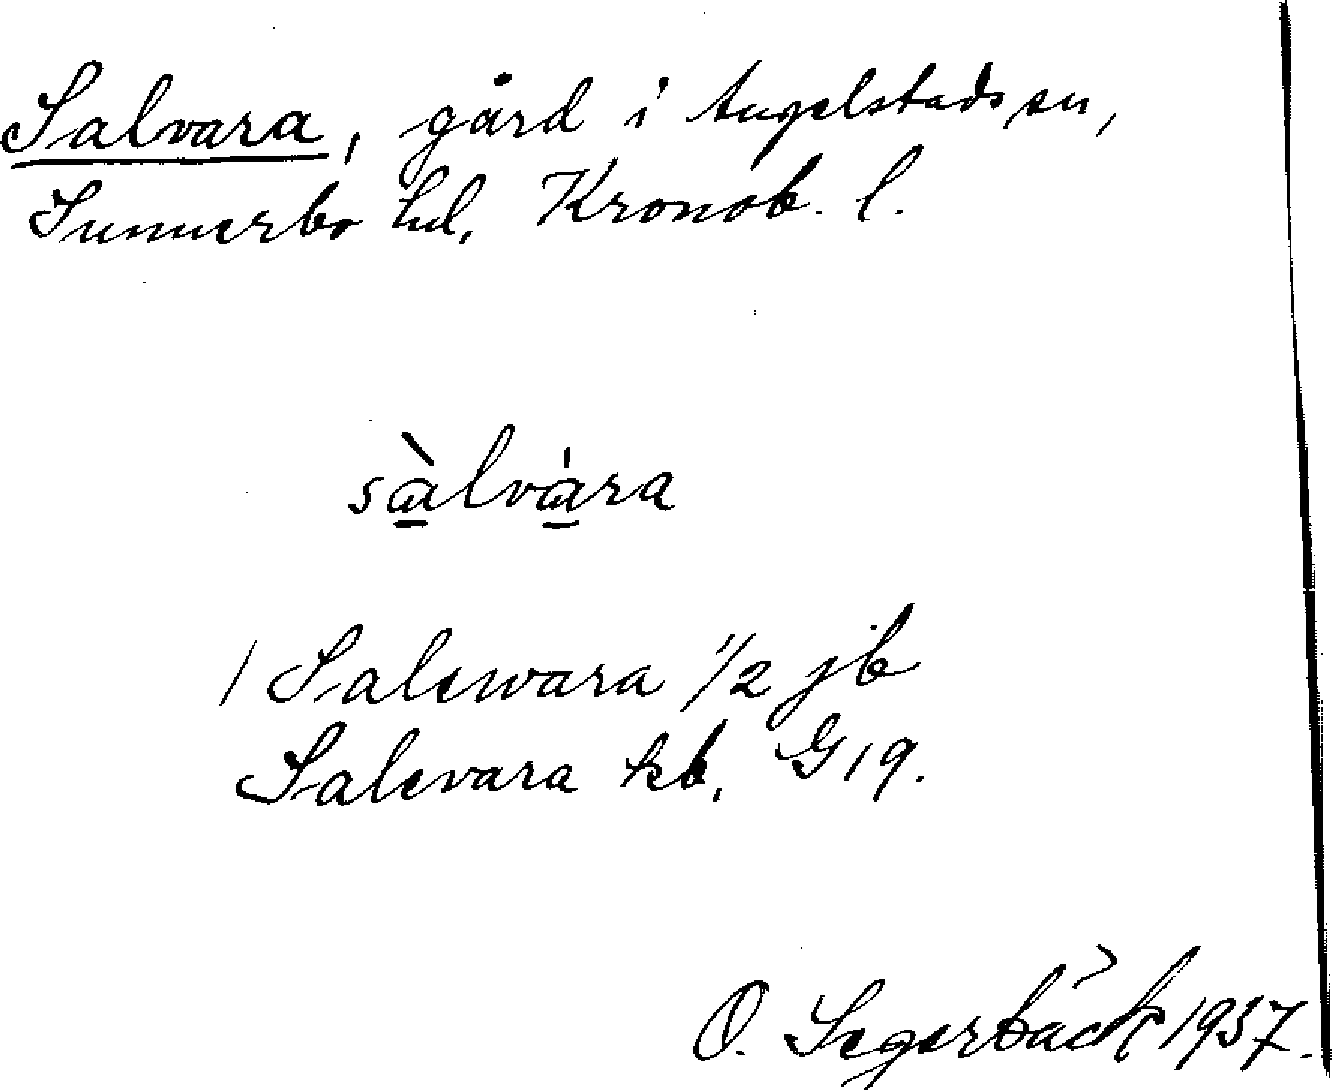 Salvara, gård i Angelstads sn,
Sunnerbo hd, Kronob. l.
sàlvára
1 Salewara 1/2 jb
Salevara kb, G 19.
O. Segerbäck 1937.